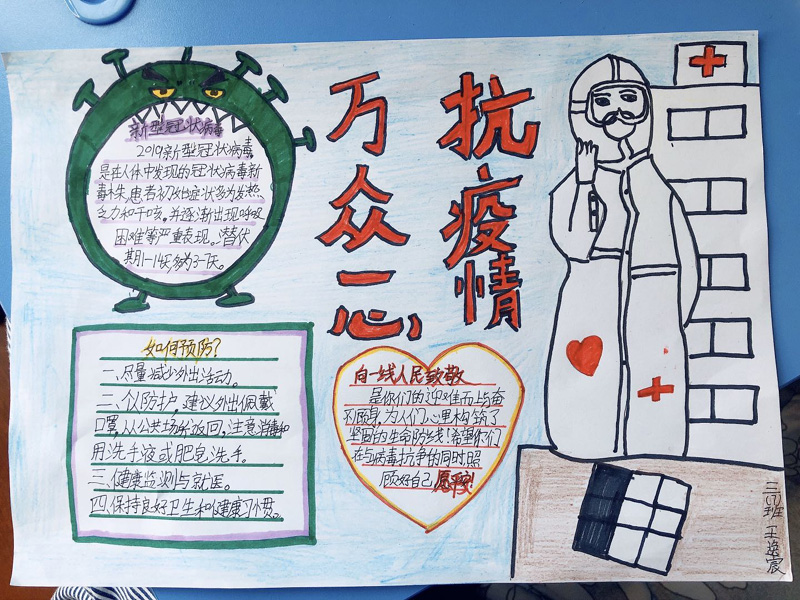 万众一心,
抗疫情
新型冠状病毒
2019新型冠状病毒,
是在人体中发现的冠状病毒新
毒株,患者初始症状多为发热、
乏力和干咳,并逐渐出现呼吸
困难等严重表现。潜伏
期1-14天,多为3-7天。
如何预防?
一、尽量减少外出活动。
二、个人防护,建议外出佩戴
口罩,从公共场所返回,注意消毒和
用洗手液或肥皂洗手。
三、健康监测与就医。
四、保持良好卫生和健康习惯。
向一线人民致敬
是你们的迎难而上与奋
不顾身,为人们心里构筑了
坚固的生命防线!希望你们
在与病毒抗争的同时照
顾好自己
愿平安!
三(7)班 王逸宸